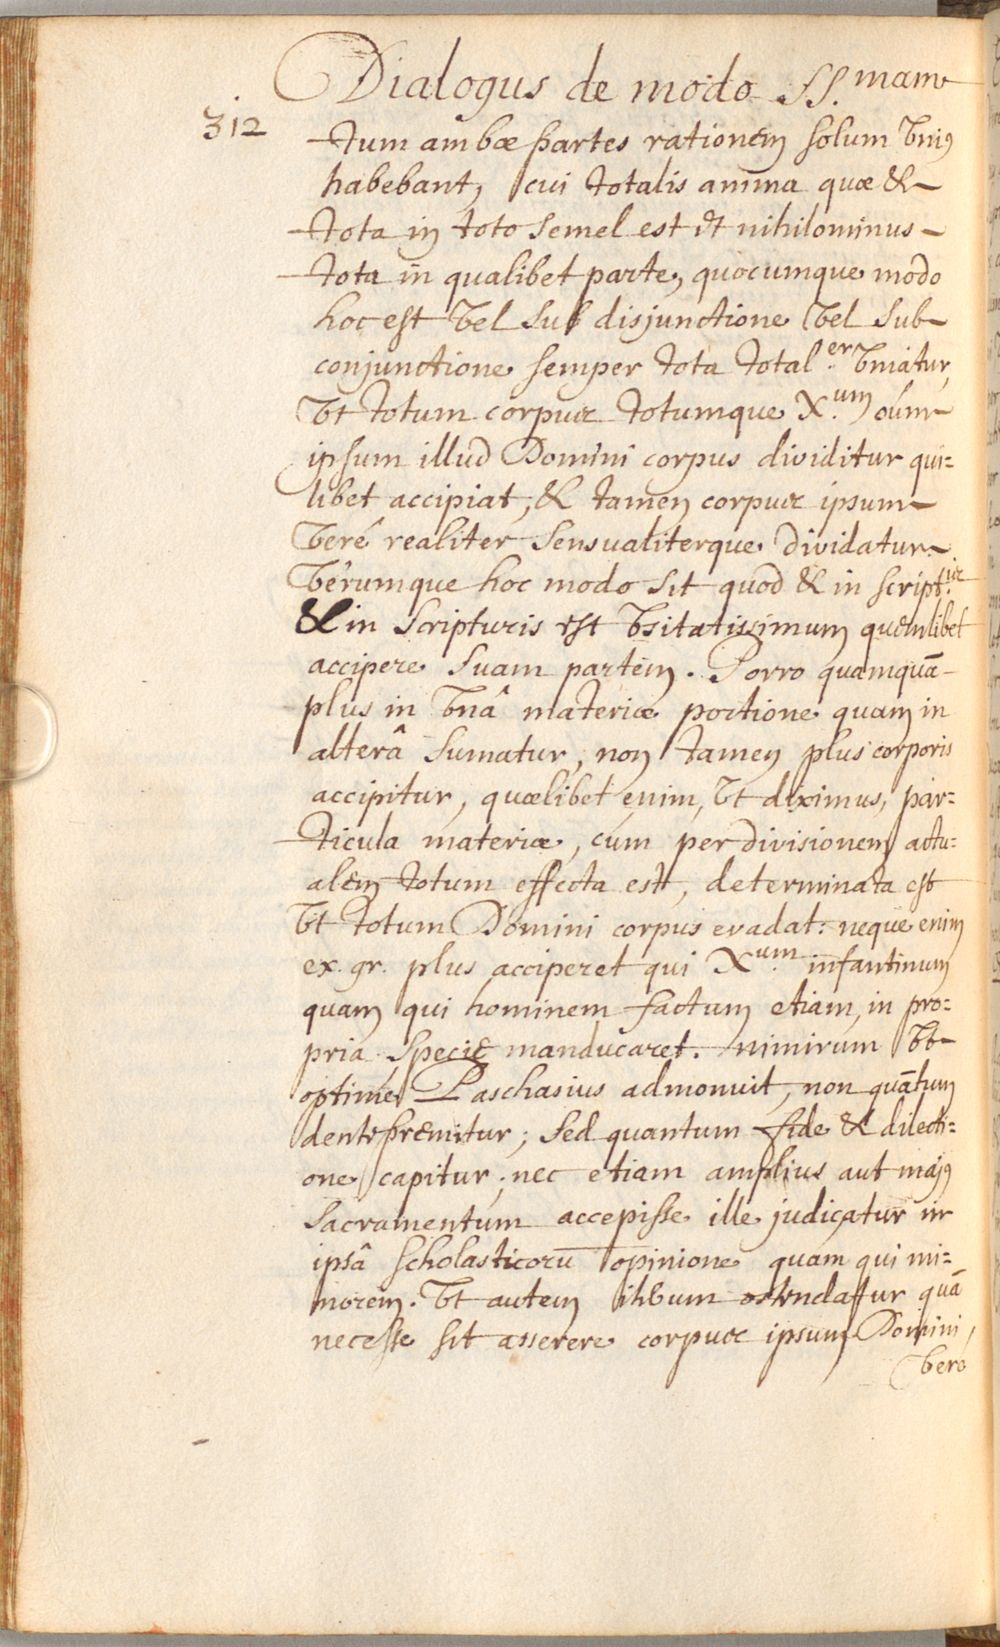 Dialogus de modo SS. mam
312
tum ambæ partes rationem solum vnius
habebant, cui totalis anima quæ &
tota in toto semel est et nihilominus
tota in qualibet parte, quocumque modo
hoc est vel sub disjunctione vel sub
conjunctione semper tota total.er vniatur,
vt totum corpus totumque X.um cúm
ipsum illud Domini corpus dividitur qui=
libet accipiat, & tamen corpus ipsum
veré realiter sensualiterque dividatur
vérumque hoc modo sit quod & in script.is
& in scripturis est vsitatissimum quemlibet
accipere suam partem. Porro quamquā
plus in vnâ materiæ portione quam in
alterâ sumatur, non tamen plus corporis
accipitur, quælibet enim, vt diximus, par=
ticula materiæ, cúm per divisionem actu=
alem totum effecta est, determinata est
vt totum Domini corpus evadat: neque enim
ex. gr. plus acciperet qui X.um infantinum
quam qui hominem factum etiam, in pro=
pria specie manducaret. nimirum vt
optimé Paschasius admonuit, non quātum
dente premitur; sed quantum fide & dilecti=
one capitur; nec etiam amplius aut majus
sacramentum accepisse ille judicatur in
ipsâ scholasticorū opinione quam qui mi=
norem. vt autem ostendatur quā
necesse sit asserere corpus ipsum Domini,
veré